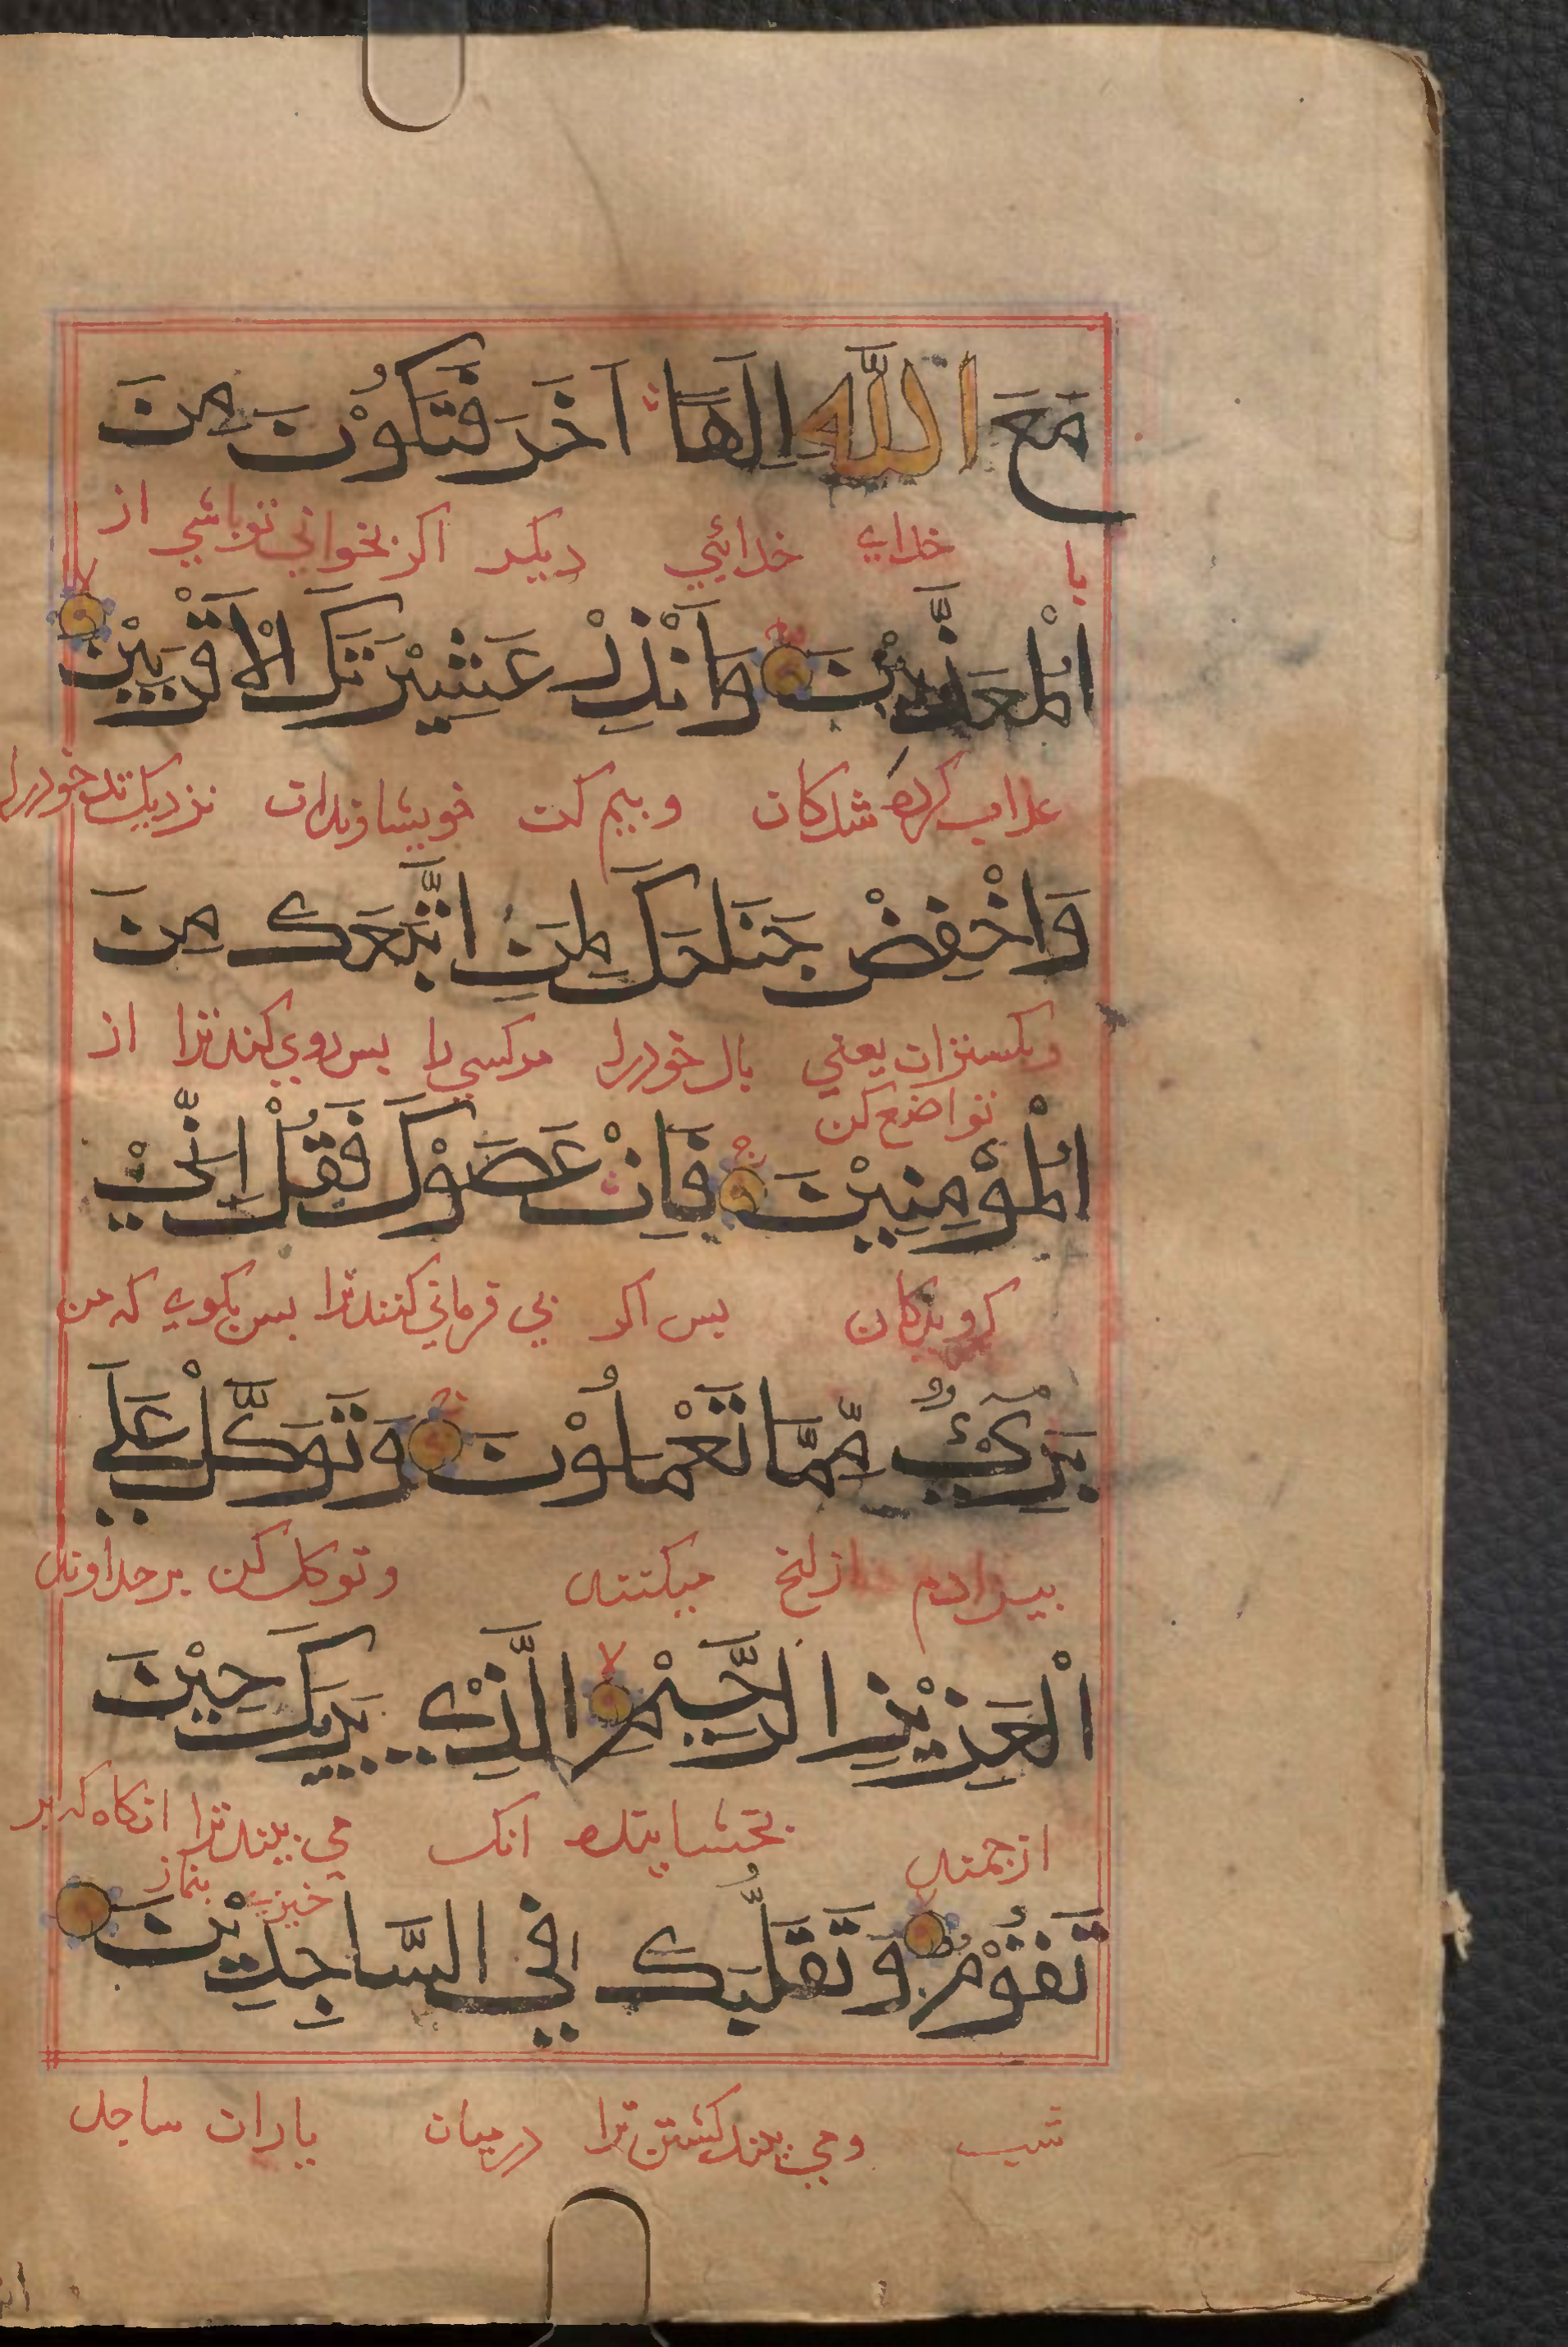 مَعَ اللّٰهِ اِلٰهًا اٰخَرَ فَتَكُوْنَ مِنَ
با خدای خدائی دیکر اکر بخوانی توباشی از
الْمُعَذَّبِيْنَ وَاَنْذِرْ عَشِيْرَتَكَ الْاَقْرَبِيْنَ لا
عذاب کرده شدکان وبیم کن خویشاوندان نزدیک تر خودرا
وَاخْفِضْ جَنَاحَكَ لِمَنِ اتَّبَعَكَ مِنَ
یعنی بال خودرا مرکسی را بس روی کند ترا از
تواضع کن
الْمُؤْمِنِيْنَ ج فَاِنْ عَصَوْكَ فَقُلْ اِنِّيْ
کرویدکان بس اکر بی فرمانی کنند ترا بس بکوی که من
بَرِيْٓءٌ مِّمَّا تَعْمَلُوْنَ ج وَتَوَكَّلْ عَلَى
بیزارم ازانج میکنند وتوکل کن بر خداوند
الْعَزِيْزِ الرَّحِيْمِ لا الَّذِيْ يَرٰىكَ حِيْنَ
ارجمند بخشاینده انک می بیند ترا انکاه که بر
خیزی بنماز
تَقُوْمُ لا وَتَقَلُّبَكَ فِي السَّاجِدِيْنَ
شب ومی بیند کشتن ترا درمیان یاران ساجد